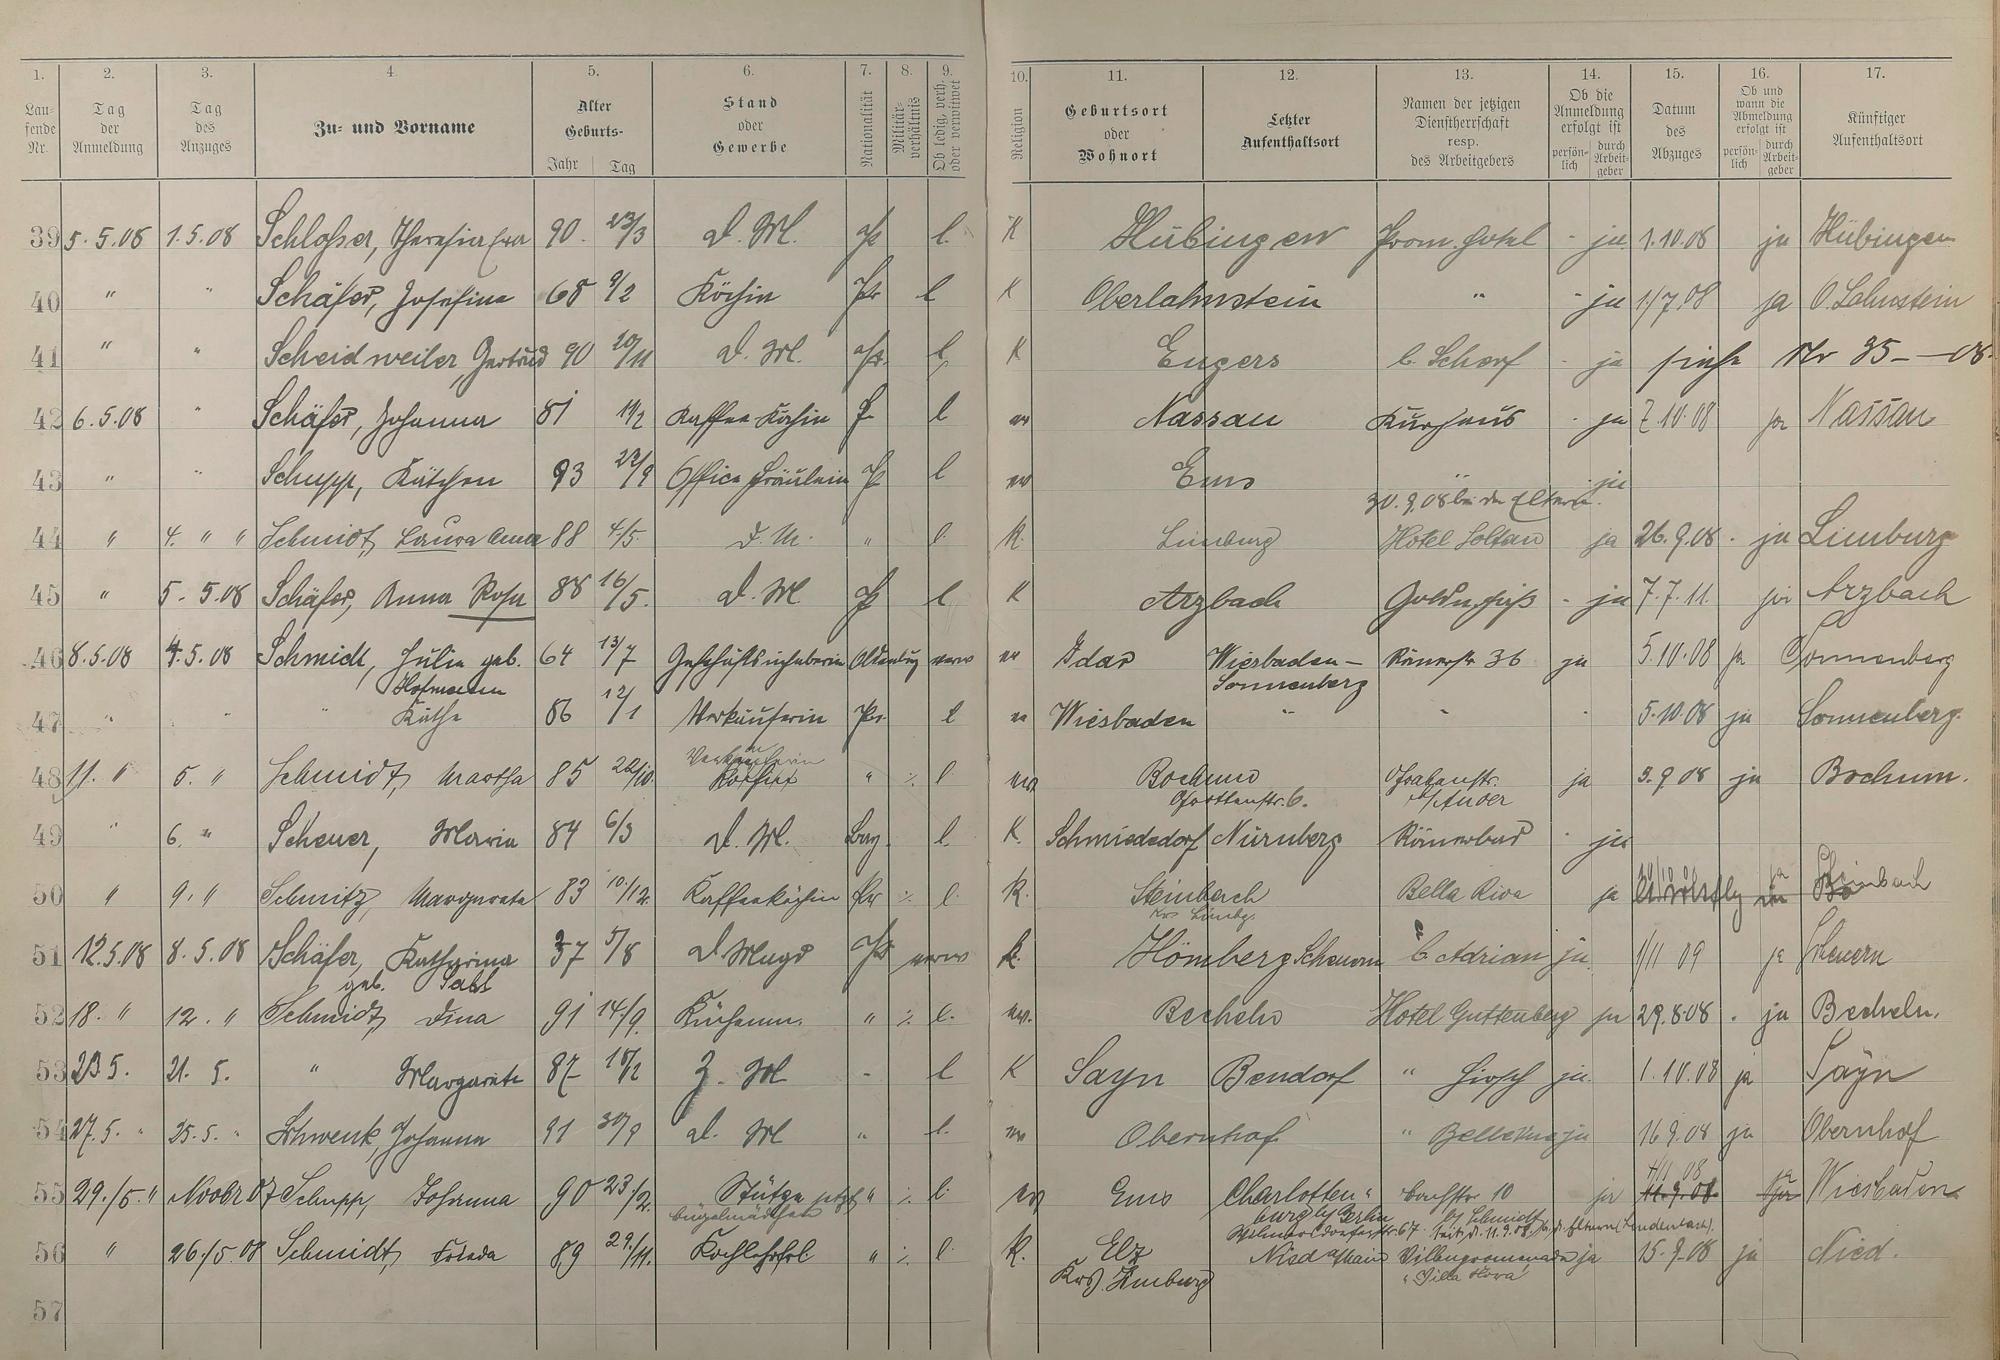 1. 2. 3. 4. 5. 6. 7. 8. 9. 10. 11. 12. 13. 14. 15. 16. 17.
Lau-
fende
Nr.
Tag
der
Anmeldung
Tag
des
Anzuges
Zu- und Vorname
Alter
Geburts-
Jahr Tag
Stand
oder
Gewerbe
Nationalität
Militär-
verhältnis
Ob ledig, verh.
oder verwitwet
Religion
Geburtsort
oder
Wohnort
Letzter
Aufenthaltsort
Namen der jetzigen
Dienstherrschaft
resp.
des Arbeitgebers
Ob die
Anmeldung
erfolgt ist
persön-
lich
durch
Arbeit-
geber
Datum
des
Abzuges
Ob und
wann die
Abmeldung
erfolgt ist
persön-
lich
durch
Arbeit-
geber
Künftiger
Aufenthaltsort
39 5.5.08 1.5.08 Schloßer, Theresia Eva 90 23/3 D. M. Pr l. K Hübingen Prom. Hotel - ja 1.10.08 ja Hübingen
40 " " Schäfer, Josefine 68 9/2 Köchin Pr l K Oberlahnstein " - ja 1/7 08 ja O. Lahnstein
41 " " Scheidweiler, Gertrud 90 10/11 D. M. Pr. l K Engers b. Scherf - ja siehe Nr 35 - 08
42 6.5.08 " Schäfer, Johanna 81 19/2 Kaffee Köchin Pr l ev Nassau Kurhaus - ja 7.10.08 ja Nassau
43 " " Schupp, Kätchen 93 22/9 Office Fräulein Pr l ev Ems " ja
30.9.08 bei den Eltern.
44 " 4. " " Schmidt, Laura Anna 88 4./5. D. M. " l. K. Limburg Hotel Soltau ja 26.9.08. - ja Limburg
45 " 5. 5.08 Schäfer, Anna Rosa 88 16/5. D. M Pr l K Arzbach Goldn. - ja 7.7.11. ja Arzbach
46 8.5.08 4.5.08 Schmidt, Julie geb. 64 13/7 Geschäftsinhaberin Oldenburg verw ev Idar Wiesbaden- Römerstr 36 ja 5.10.08 ja Sonnenberg
Hofmann Sonnenberg
47 " " " Käthe 86 12/1 Verkäuferin Pr. l ev Wiesbaden " " - 5.10.08 ja Sonnenberg.
Verkäuferin
48 11. " 5. " Schmidt, Martha 85 22/10. " % l. ev. Bochum Grabenstr. ja 3.9 08 ja Bochum.
str. 6.
49 " 6. " Scheuer, Maria 84 6/3 D. M. Bay. l. K. Schmiededorf Nürnberg Römerbad - ja
50 " 9. " Schmitz, Margareta 83 10./12. Kaffeeköchin Pr % l. K. Steinbach Bella Riva ja ja Steinbach
Krs Limbg.
51 12.5.08 8.5.08 Schäfer, Katharina 37 5/8 D. Magd Pr verw k. Hömberg Scheuern b. Adrian ja 1/11 09 ja Scheuern
geb.
52 18. " 12. " Schmidt, Dina 91 14./9. Küchenm. " % l. ev. Becheln Hotel Guttenberg ja 29.8.08 - ja Becheln.
53 23 5. 21. 5. " Margarete 87 18/2 Z. M - l K Sayn Bendorf " Hirsch ja. 1.10.08 ja Sayn
54 27.5. " 25.5. " Schwenk, Johanna 91 30/9 D. M " l. ev Obernhof " Bellevue ja 16 9.08 ja Obernhof
55 29./5. " Novbr 07 Schupp, Johanna 90 23/2. Stütze jetzt " % l. ev Ems Charlotten- str 10 ja 11.9.08 ja Wiesbaden
Bügelmädchen burg b/ Berlin b/ Schmidt
str. 67. seit d. 11.9.08 b. d. Eltern (Lindenbach).
56 " 26./5.08 Schmidt, Frieda 89 29./11. Kochlehrfrl " % l. K. Elz Nied a/Main Villenpromenade ja 15.9.08 ja Nied.
Krs. Limburg "Villa
57